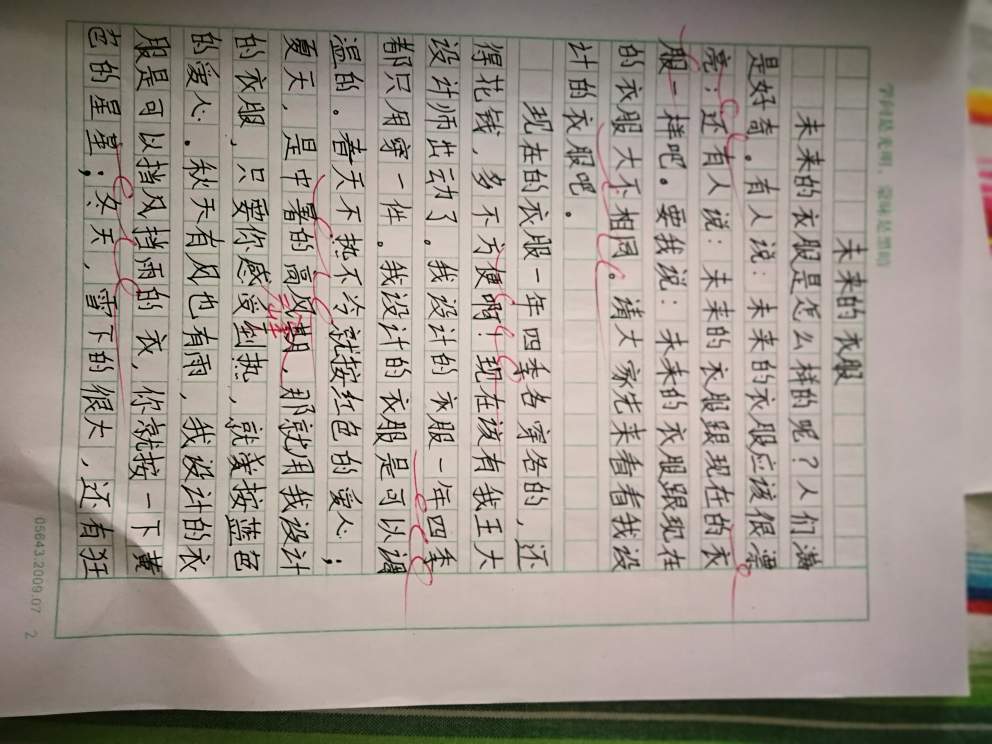 学问是光明，蒙昧是黑暗
未来的衣服
未来的衣服是怎么样的呢？人们满
是好奇。有人说：未来的衣服应该很漂
亮；还有人说：未来的衣服跟现在的衣
服一样吧。要我说：未来的衣服跟现在
的衣服大不相同。请大家先来看看我设
计的衣服吧。
现在的衣服一年四季各穿各的，还
得花钱，多不方便啊！现在该有我王大
设计师出动了。我设计的衣服一年四季
都只用穿一件。我设计的衣服是可以调
温的。春天不热不冷就按红色的爱心；
夏天，是中暑的高峰期，那就用我设计
的衣服，只要你感受到热，就按蓝色
的爱心。秋天有风也有雨，我设计的衣
服是可以挡风挡雨的衣，你就按一下黄
色的星星；冬天，雪下的很大，还有狂
05643.2009.07 2